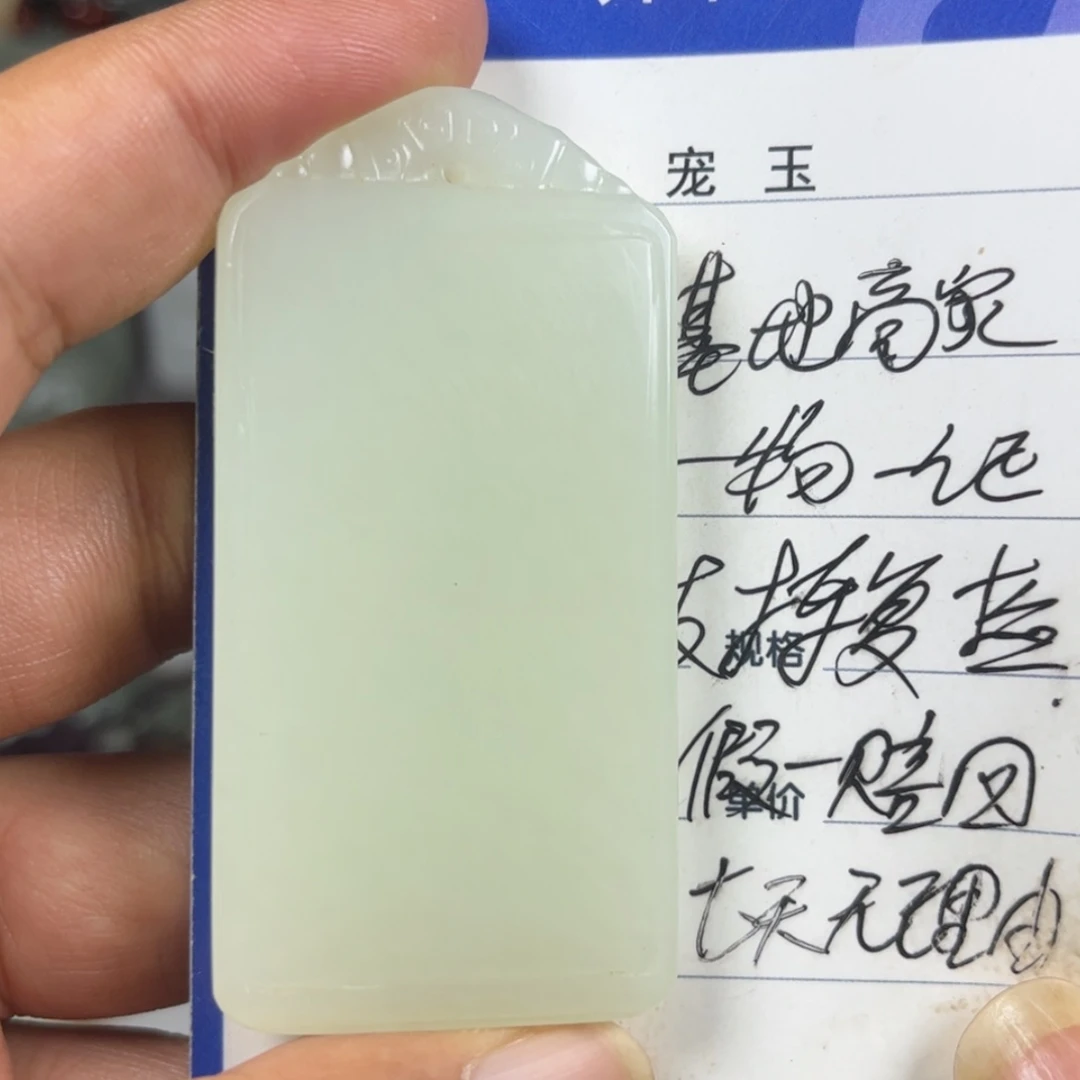 宠玉
基地商家
一物一记
支持复检
规格
假一赔四
单价
七天无理由